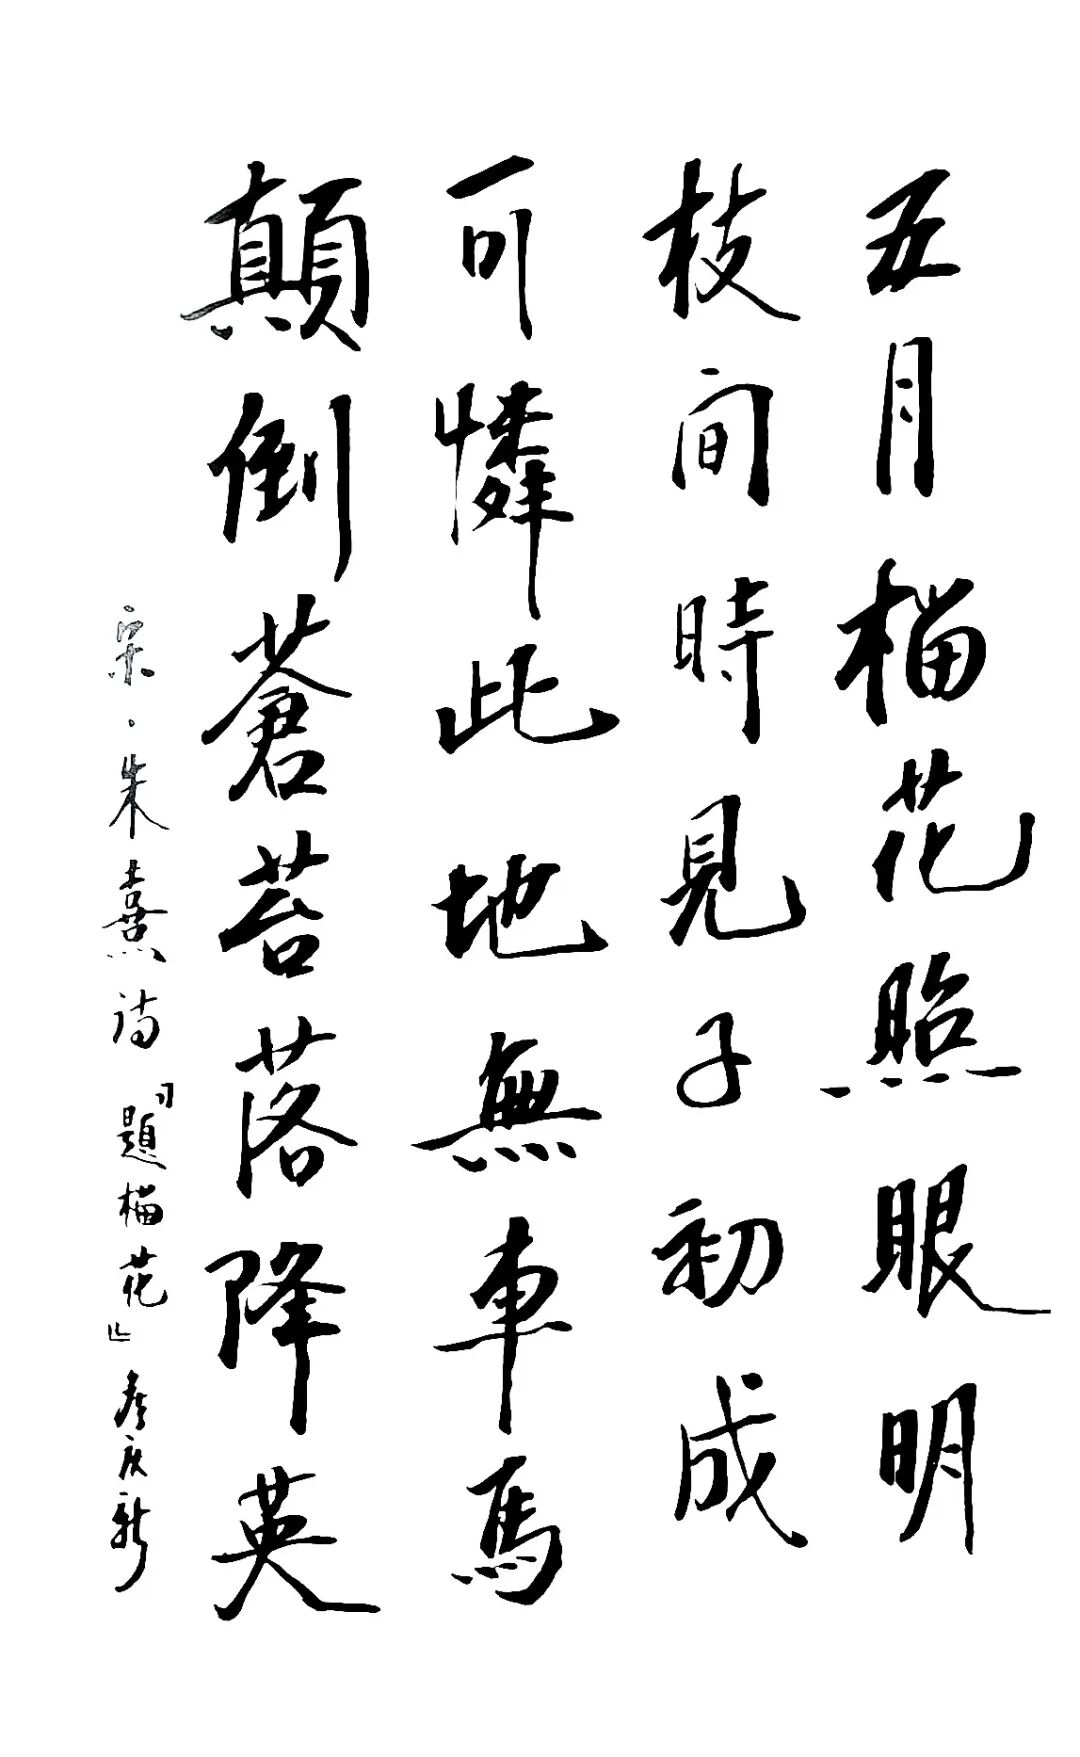 五月榴花照眼明
枝间時見子初成
可憐此地無車馬
顛倒蒼苔落降英
宋·朱熹诗『題榴花』岸庆新